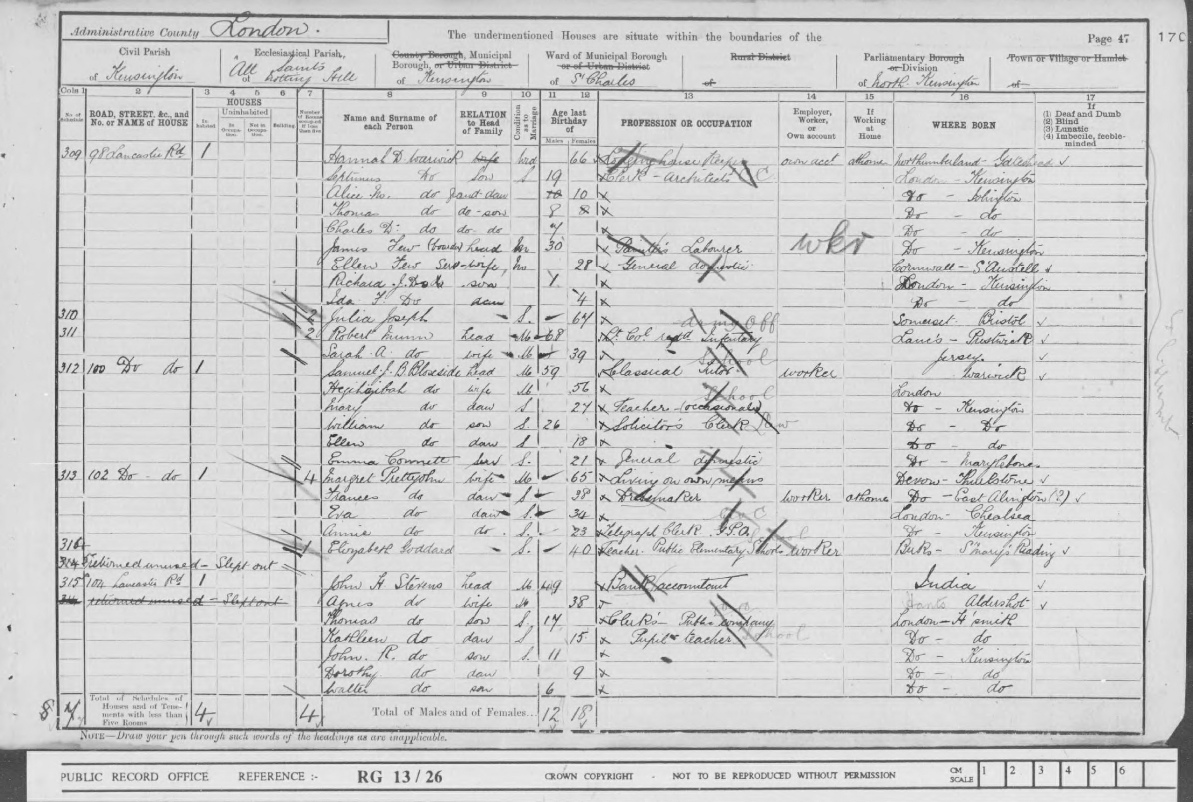 Administrative County London.
The undermentioned Houses are situate within the boundaries of the
Page 47
170
Civil Parish of Kensington
Ecclesiastical Parish, of All Saints Notting Hill
County Borough, Municipal Borough, or Urban District of Kensington
Ward of Municipal Borough or of Urban District of St Charles
Rural District of
Parliamentary Borough or Division of North Kensington
Town or Village or Hamlet of
Cols 1 2 3 4 5 6 7 8 9 10 11 12 13 14 15 16 17
No. of Schedule
ROAD, STREET, &c., and No. or NAME of HOUSE
HOUSES
Inhabited
Uninhabited
In Occupation
Not in Occupation
Building
Number of Rooms occupied if less than five
Name and Surname of each Person
RELATION to Head of Family
Condition as to Marriage
Age last Birthday of
Males Females
PROFESSION OR OCCUPATION
Employer, Worker, or Own account
If Working at Home
WHERE BORN
If (1) Deaf and Dumb (2) Blind (3) Lunatic (4) Imbecile, feeble-minded
309 98 Lancaster Rd 1 Hannah D Warwick wife Wid 66 Lodging house Keeper own acct at home Northumberland -
Septimus do son S 19 Clerk - Architects London - Kensington
Alice M. do grand-dau 10 10 Do - Islington
Thomas do do - son 8 8 Do - do
Charles D. do do - do 7 Do - do
James Few head M 30 Labourer wkr Do - Kensington
Ellen Few Serv - wife M 28 General domestic Cornwall - St Austell
Richard J. Do son London - Kensington
Ida F. Do dau 4 Do - do
310 2 Julia Joseph S. 67 Somerset. Bristol
311 2 Robert Munn head M 68 Lt. Col. Infantry Lancs - Prestwick
Sarah A. do wife M 39 Jersey
312 100 Do do 1 Samuel J. B. head M 59 Classical Tutor worker Warwick
Hephzibah do wife M 56 London
Mary do dau S 27 Teacher (occasional) Do - Kensington
William do son S. 26 Solicitor's Clerk Law Do - Do
Ellen do dau S 18 Do - do
Emma Connett serv S. 21 General domestic Do - Marylebone
313 102 Do - do 1 4 Margret Prettyjohn wife M 65 Living on own means Devon - Thurlestone
Frances do dau S 38 Dressmaker worker at home Do - East Alington (?)
Eva do dau S. 34 London - Chealsea
Annie do do S. 23 Telegraph Clerk G.P.O. Do - Kensington
1 Elizabeth Goddard S. 40 Teacher Public Elementary School worker Berks - St Mary's Reading
returned unused - Slept out
315 104 Lancaster Rd 1 John H Stevens head M 49 Bank accountant India
returned unused - Slept out Agnes do wife M 38 Hants Aldershot
Thomas do son S. 17 Clerk's - Public company London - H'smith
Kathleen do dau S 15 Pupil teacher School Do - do
John. R. do son S. 11 Do - Kensington
Dorothy do dau 9 Do - do
Walter do son 6 Do - do
Total of Schedules of Houses and of Tenements with less than Five Rooms 4 4 Total of Males and of Females... 12 18
NOTE—Draw your pen through such words of the headings as are inapplicable.
PUBLIC RECORD OFFICE REFERENCE :- RG 13 / 26 CROWN COPYRIGHT - NOT TO BE REPRODUCED WITHOUT PERMISSION CM SCALE 1 2 3 4 5 6